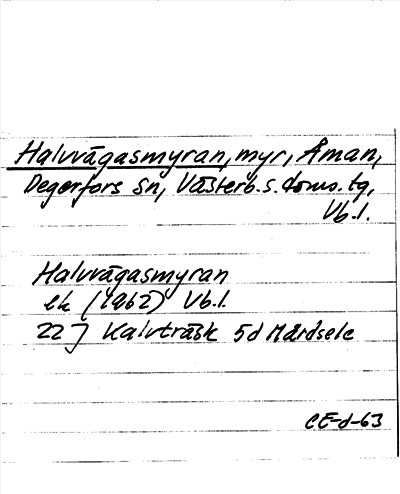 Halvvägasmyran, myr, Åman,
Degerfors sn, Västerb. s. doms. tg,
Vb.l.
Halvvägasmyran
ek (1962) Vb.l.
22 J Kalvträsk 5d Mårdsele
CE-d-63